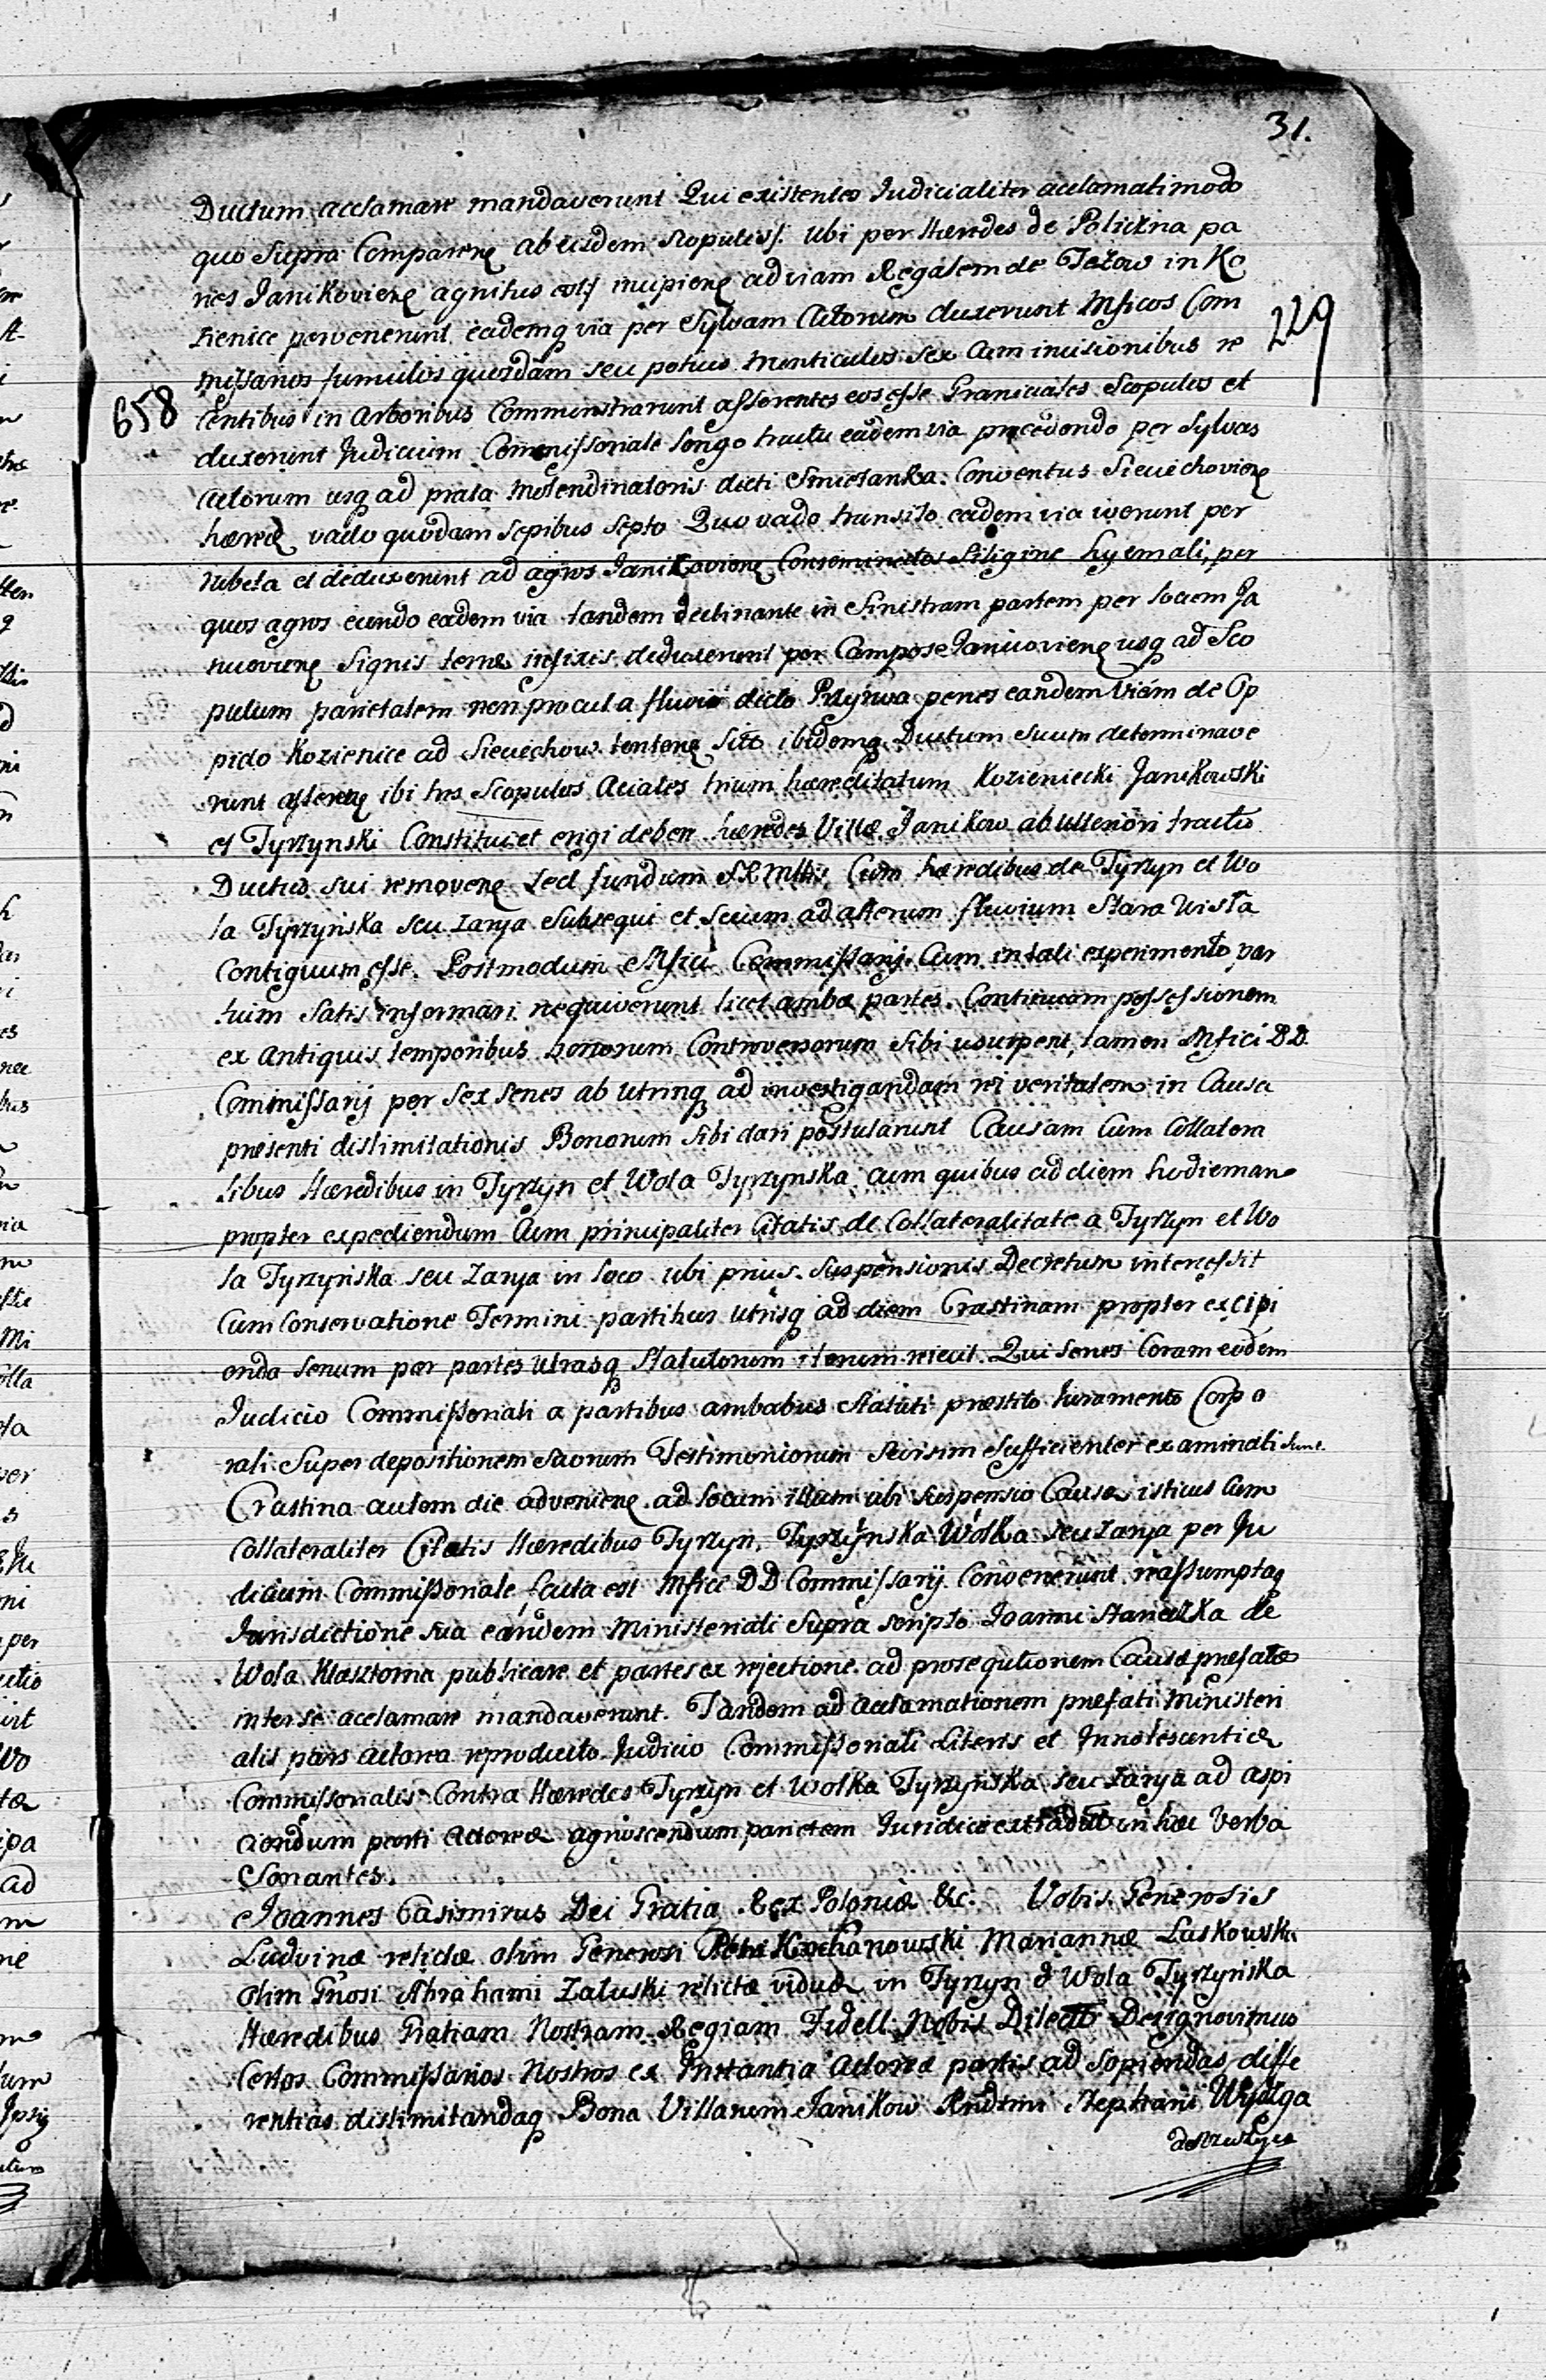 31.
Ductum acclamare mandaverunt Qui existentes Judicialiter acclamati modo
quo Supra Comparen ab eisdem scopulis s. Ubi per Hæredes de Policzna pa
ries Janikovien agnitus est incipien ad viam Regalem de Jeżow in Ko
zienice pervenerunt eademq via per Sylvam Actorum duxerunt Mficos Com
229
missarios fumulos quosdam seu potius monticulos sex Cum incisionibus re
658
centibus in Arboribus Commonstrarunt asserentes eos esse Graniciales Scopulos et
duxerunt Judicium Commissoriale longo tractu eadem via procedendo per Sylvas
Actorum usq ad prata Molendinatoris dicti Smietanka Conventus Sieciechovien
hæred vado quodam sepibus septo Quo vado transito eadem via iverunt per
rubeta et deduxerunt ad agros Janikovien Conseminatos Siligine hyemali, per
quos agros eundo eadem via tandem declinante in Sinistram partem per locum Ja
nicovien Signis terræ infixis deduxerunt per Campos Janicovien usq ad Sco
pulum parietalem non procul a fluvio dicto Przyrwa penes eandem Viam de Op
pido Kozienice ad Sieciechow tenten Sitt ibidemq Ductum suum determinave
runt asseren ibi tres Scopulos Aciales trium hæreditatum Kozieniecki Janikowski
et Tyrzynski Constitui et erigi deben hæredes Villæ Janikow ab ulteriori tractu
Ductus sui removen sed fundum S R Mttis Cum hæredibus de Tyrzyn et Wo
la Tyrzyńska seu Zarya Subsequi et secum ad alterum fluvium Stara Wisła
Contiguum esse. Postmodum Mfici Commissarij Cum in tali experimento par
tium Satis informari nequiverunt licet ambæ partes Continuam possessionem
ex Antiquis temporibus bonorum Controversorum Sibi usurpent, tamen Mfici DD
Commissarij per sex senes ab utrinq ad investigandam rei veritatem in Causa
presenti dislimitationis Bonorum Sibi dari postularunt Causam Cum Collatera
libus Hæredibus in Tyrzyn et Wola Tyrzynska cum quibus ad diem hodiernam
propter expediendum Cum principaliter Citatis de Collateralitate a Tyrzyn et Wo
la Tyrzyńska seu Zarya in loco ubi prius Suspensionis Decretum intercessit
Cum Conservatione Termini partibus utrisq ad diem Crastinam propter excipi
enda senum per partes utrasq Statutorum iterum rejecit. Qui senes Coram eodem
Judicio Commissoriali a partibus ambabus Statuti præstito Juramento Corpo
rali Super depositionem suorum Testimoniorum seorsim sufficienter examinati sunt.
Crastina autem die advenien ad locum illum ubi suspensio Causæ istius Cum
Collateraliter Citatis Hæredibus Tyrzyn, Tyrzyńska Wolka seu Zarya per Ju
dicium Commissoriale facta est Mfici DD Commissarij Convenerunt reassumptaq
Jurisdictione sua eandem Ministeriali Supra scripto Joanni Staniaszka de
Wola Klasztorna publicare et partes ex rejectione ad prosequtionem Causæ prefatæ
inter se acclamare mandaverunt. Tandem ad Acclamationem prefati Ministeri
alis pars actorea reproducto Judicio Commissoriali Literis et Innotescentiæ
Commissorialis Contra Hæredes Tyrzyn et Wolka Tyrzyńska seu Zarya ad aspi
ciendum parti Actoreæ agnoscendum parietem Juridice extradit in hæc Verba
Sonantes.
Joannes Casimirus Dei Gratia Rex Poloniæ &c. Vobis Generosis
Ludvinæ relictæ olim Generosi Petri Kochanowski Mariannæ Laskowska
olim Gnosi Abrahami Zaluski relictæ viduæ in Tyrzyn & Wola Tyrzyńska
Hæredibus Gratiam Nostram Regiam Fidell Nobis Dilectt Designavimus
Certos Commissarios Nostros ex Instantia Actoreæ partis ad Sopiendas diffe
rentias dislimitandaq Bona Villarum Janikow Rndrmi Stephani Wydzga